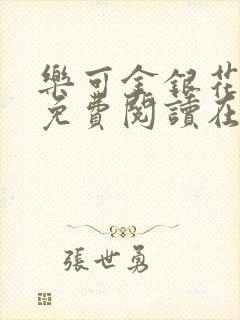 樂可金銀花
免費閱讀在
張世勇